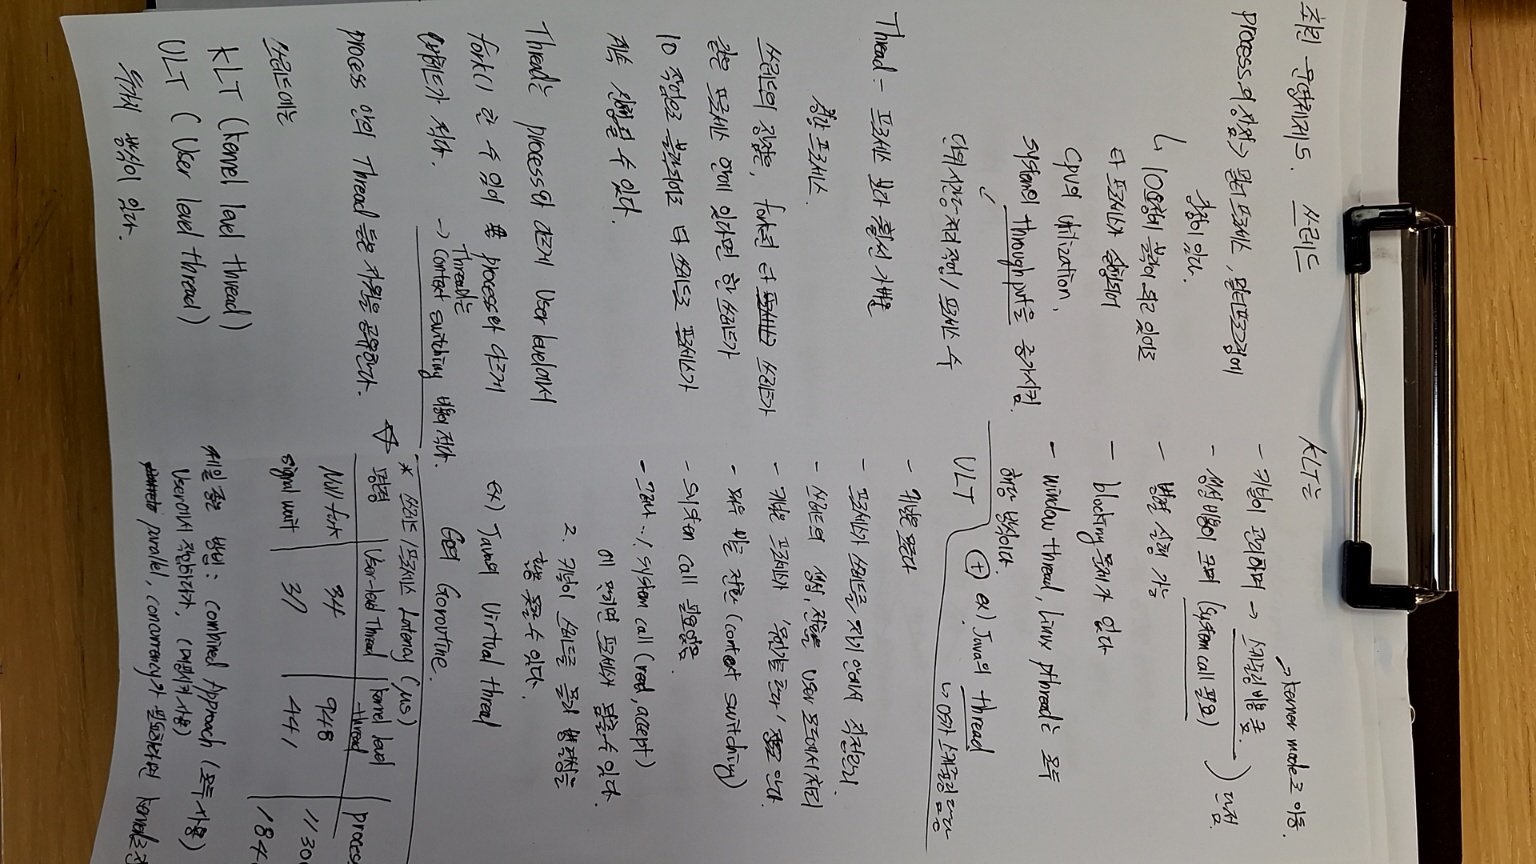 최린 운영체제 5. 쓰레드
process의 장점 → 멀티 프로세스, 멀티프로그램에
강점이 있다.
↳ IO요청에 블락이 되고 있어도
타 프로세스가 실행되어
CPU의 utilization,
system의 throughput을 증가시킴.
↙
단위시간당 처리 작업 / 프로세스 수
Thread - 프로세스 보다 훨씬 가벼운
경량 프로세스.
쓰레드의 장점은, fork된 타 쓰레드가
같은 프로세스 안에 있다면 한 쓰레드가
IO 작업으로 블락되어도 타 쓰레드로 프로세스가
계속 실행될 수 있다.
Thread는 process와 다르게 User level에서
fork() 할 수 있어 process와 다르게
오버헤드가 적다. → Thread는 Context switching 비용이 적다.
process 안의 Thread 들은 자원을 공유한다.
쓰레드에는
KLT (Kernel level thread)
ULT ( User level thread)
두가지 방식이 있다.
KLT는
→ kerner mode로 이동.
- 커널이 관리하며 → 스케쥴링 비용 큼.
- 생성 비용이 크며 (System call 필요) ) 단점
- 병렬 실행 가능
- blocking 문제가 없다
- window thread, Linux pthread는 모두
해당 방식이다.
⊕ ex) Java의 thread
↳ OS가 스케쥴링 담당
ULT
- 커널은 모른다
- 프로세스가 쓰레드를 자기 안에서 직접관리.
- 쓰레드의 생성, 전환을 user 모드에서 처리
- 커널은 프로세스가 '무언가를 한다' 정도로 안다.
- 매우 빠른 전환 (context switching)
- System call 필요없음.
- 그러나.. 1. System call (read, accept)
에 막히면 프로세스가 멈출수 있다.
2. 커널이 쓰레드를 몰라 병렬성을
활용 못할 수 있다.
ex) Java의 Virtual thread
Go의 Goroutine.
* 쓰레드 / 프로세스 Latency (μs)
명령 | User-level Thread | Kernel level thread | process
Null fork 34 948 1130
signal wait 37 441 184
제일 좋은 방법 : Combined Approach (모두 사용)
User에서 작업하다가, (매핑시켜 사용)
parallel, concurrency가 필요하다면 kernel로